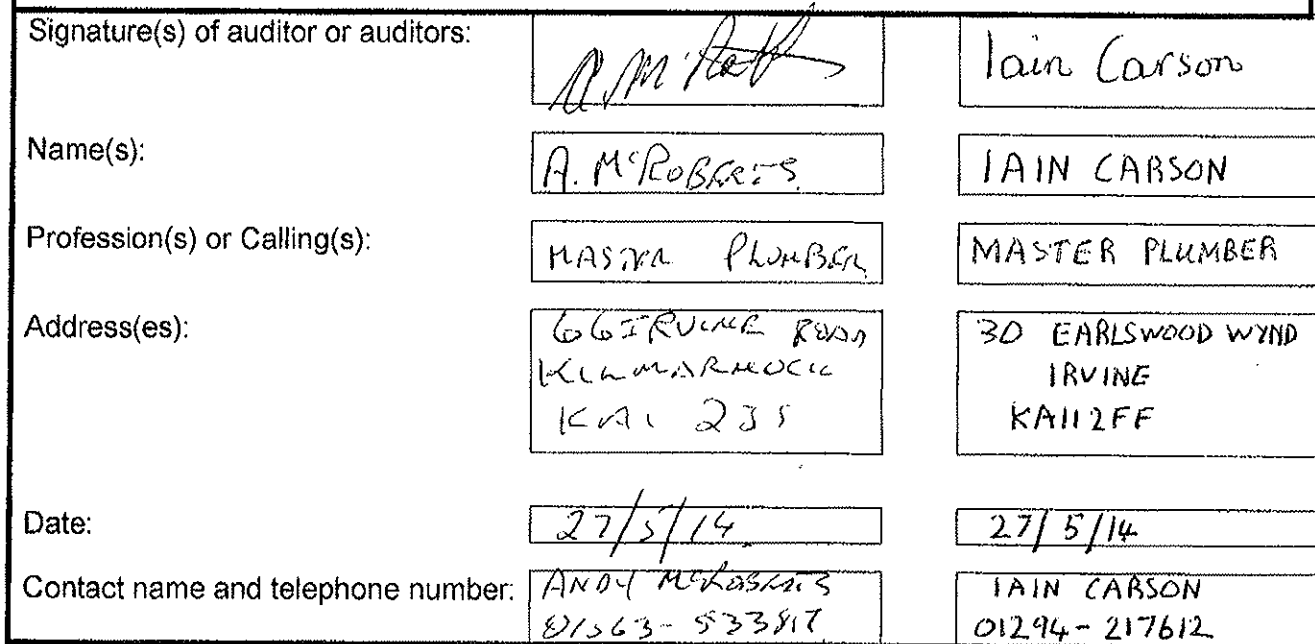 Signature(s) of auditor or auditors:
Iain Carson
Name(s):
A. McROBERTS
IAIN CARSON
Profession(s) or Calling(s):
MASTER PLUMBER
MASTER PLUMBER
Address(es):
66 IRVINE ROAD
KILMARNOCK
KA1 2JS
30 EARLSWOOD WYND
IRVINE
KA11 2FF
Date:
27/5/14
27/5/14
Contact name and telephone number:
ANDY McROBERTS
01563-533817
IAIN CARSON
01294-217612